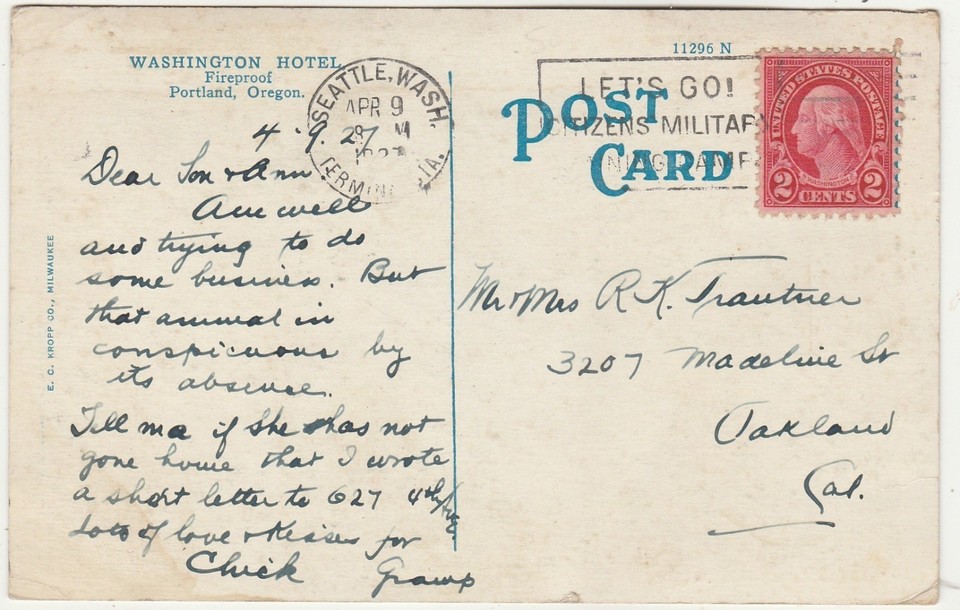 WASHINGTON HOTEL
Fireproof
Portland, Oregon.
11296 N
POST
CARD
SEATTLE, WASH.
APR 9
TERMINAL
LET'S GO!
CITIZENS MILITARY
UNITED STATES POSTAGE
WASHINGTON
2 CENTS 2
E. C. KROPP CO., MILWAUKEE
4.9.27
Dear Son & Ann
Am well
and trying to do
some business. But
that animal in
conspicuous by
its absence.
Tell ma if she has not
gone home that I wrote
a short letter to 627 4th Ave
Lots of love & kisses for
Chick Gramp
Mr & Mrs R. K. Trautner
3207 Madeline St
Oakland
Cal.